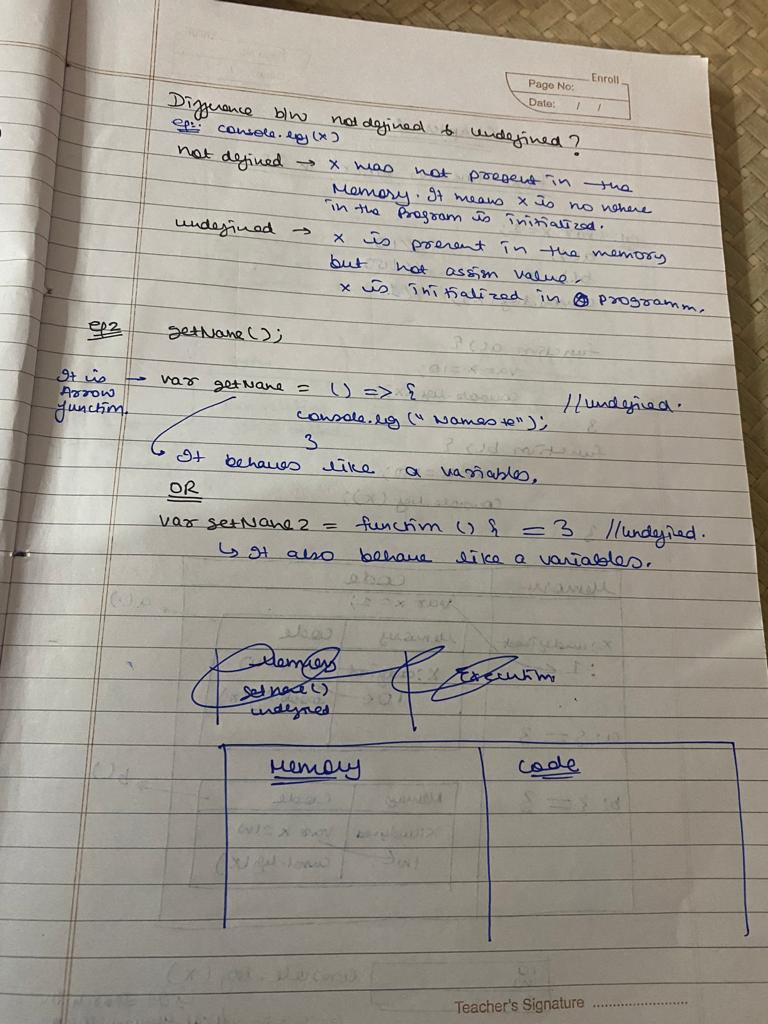 Enroll
Page No:
Date: / /
Difference b/w not defined & undefined?
eg: console.log(x)
not defined → x was not present in the
Memory. It means x is no where
in the Program is initialized.
undefined → x is present in the memory
but not assign value.
x is initialized in programm.
eg2 getName();
It is Arrow function. → var getName = () => { //undefined.
console.log("Namaste");
}
↳ It behaves like a variables.
OR
var getName2 = function () { = } //undefined.
↳ It also behave like a variables.
Memory Execution
getName()
undefined
Memory Code
Teacher's Signature ........................